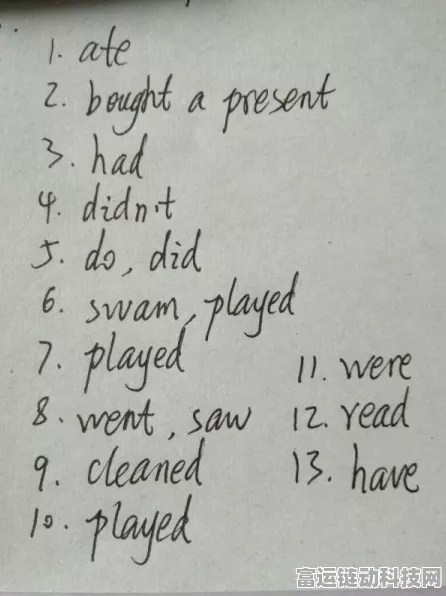 1. ate
2. bought a present
3. had
4. didn't
5. do, did
6. swam, played
7. played
8. went, saw
9. cleaned
10. played
11. were
12. read
13. have
富运链动科技网